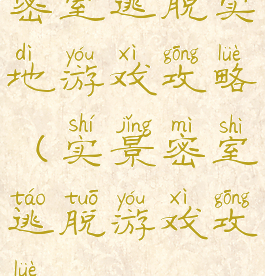 密室逃脱实
dì yóu xì gōng lüè
地游戏攻略
shí jǐng mì shì
（实景密室
táo tuō yóu xì gōng
逃脱游戏攻
lüè